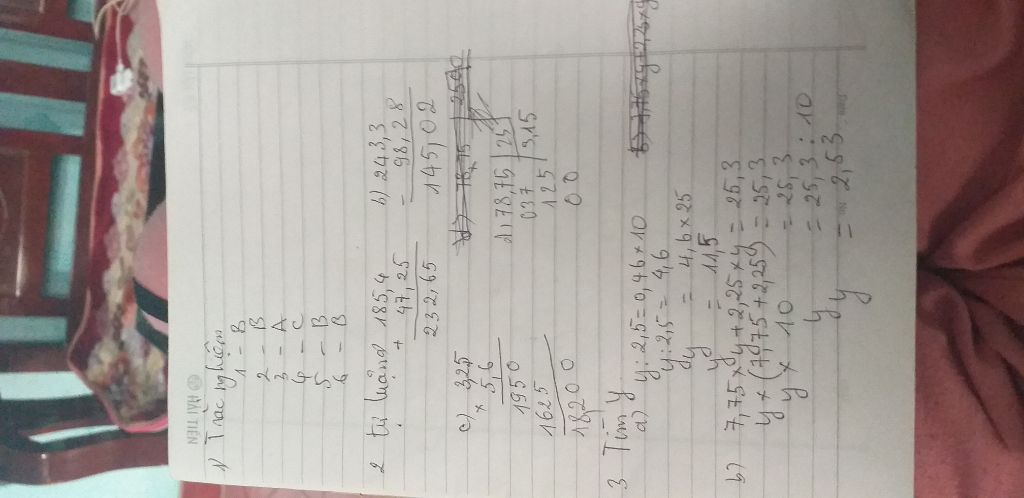 HẢI TIẾN
1) Trắc nghiệm
1 - B
2 - B
3 - A
4 - C
5 - B
6 - B
2 tự luận
a) 185,4
+ 47,25
232,65
b) 243,3
- 98,28
145,02
c) 3,25
× 5,6
1950
1625
18,200
d) 78,75 | 25
037 3,15
125
00
3 Tìm y
a) y : 2,5 = 0,46 × 10
y : 2,5 = 4,6
y = 4,6 × 25
y = 11,5
b) 7,75 × y + 2,25 × y = 25,3
y × (7,75 + 2,25) = 25,3
y × 10 = 25,3
y = 25,3 : 10
y = 2,53